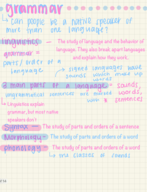 grammar
• Can people be a native speaker of more than one language?
Linguistics — The study of language and the behavior of
language. They also break apart languages
and explain how they work.
grammar =
parts/rules of a
language.
→ signed languages have
sounds would make up
words
3 main parts of a language — sounds,
words,
& sentences
→ Linguistics explain
grammar, but most native
speakers don't
Syntax — The study of parts and orders of a sentence
Morphology — The study of parts and orders of a word
Phonology — The study of parts and orders of a word